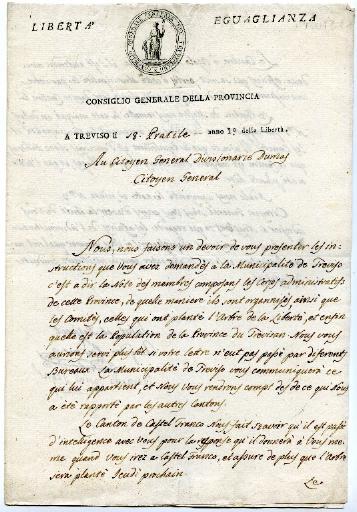 LIBERTA' EGUAGLIANZA
CONSIGLIO GENERALE DELLA PROVINCIA
A TREVISO il 18. Pratile anno 1º della Libertà.
Au Citoyen General Divisionaire Dumas
Citoyen General
Nous, nous faisons un devoir de vous presenter les in-
structions que vous avez demandès a la Municipalitè de Treviso
c'est a dir la Note des membres composans les Corps administratifs
de cette Province, de quelle maniere ils sont organisès, ainsi que
les Comitès, celles qui ont plantè l'Arbre de la Libertè, et enfin
quelle est la Population de la Province du Trevisan. Nous vous
aurions servi plustôt si votre lettre n'eut pas passè par diferents
Bureaux. La Municipalitè de Treviso vous communiquera ce
qui lui appartient, et Nous vous rendrons compt de ce qui Nous
a ètè rapportè par les autres Cantons.
Le Canton de Castel Franco Nous fait sçavoir qu'il est passè
d'intelligence avec vous pour la reponse qu'il donnerà à Vous mê-
me quand vous irez a Castel Franco, et assure de plus que l'Arbre
serà plantè Jeudi prochain.
Le